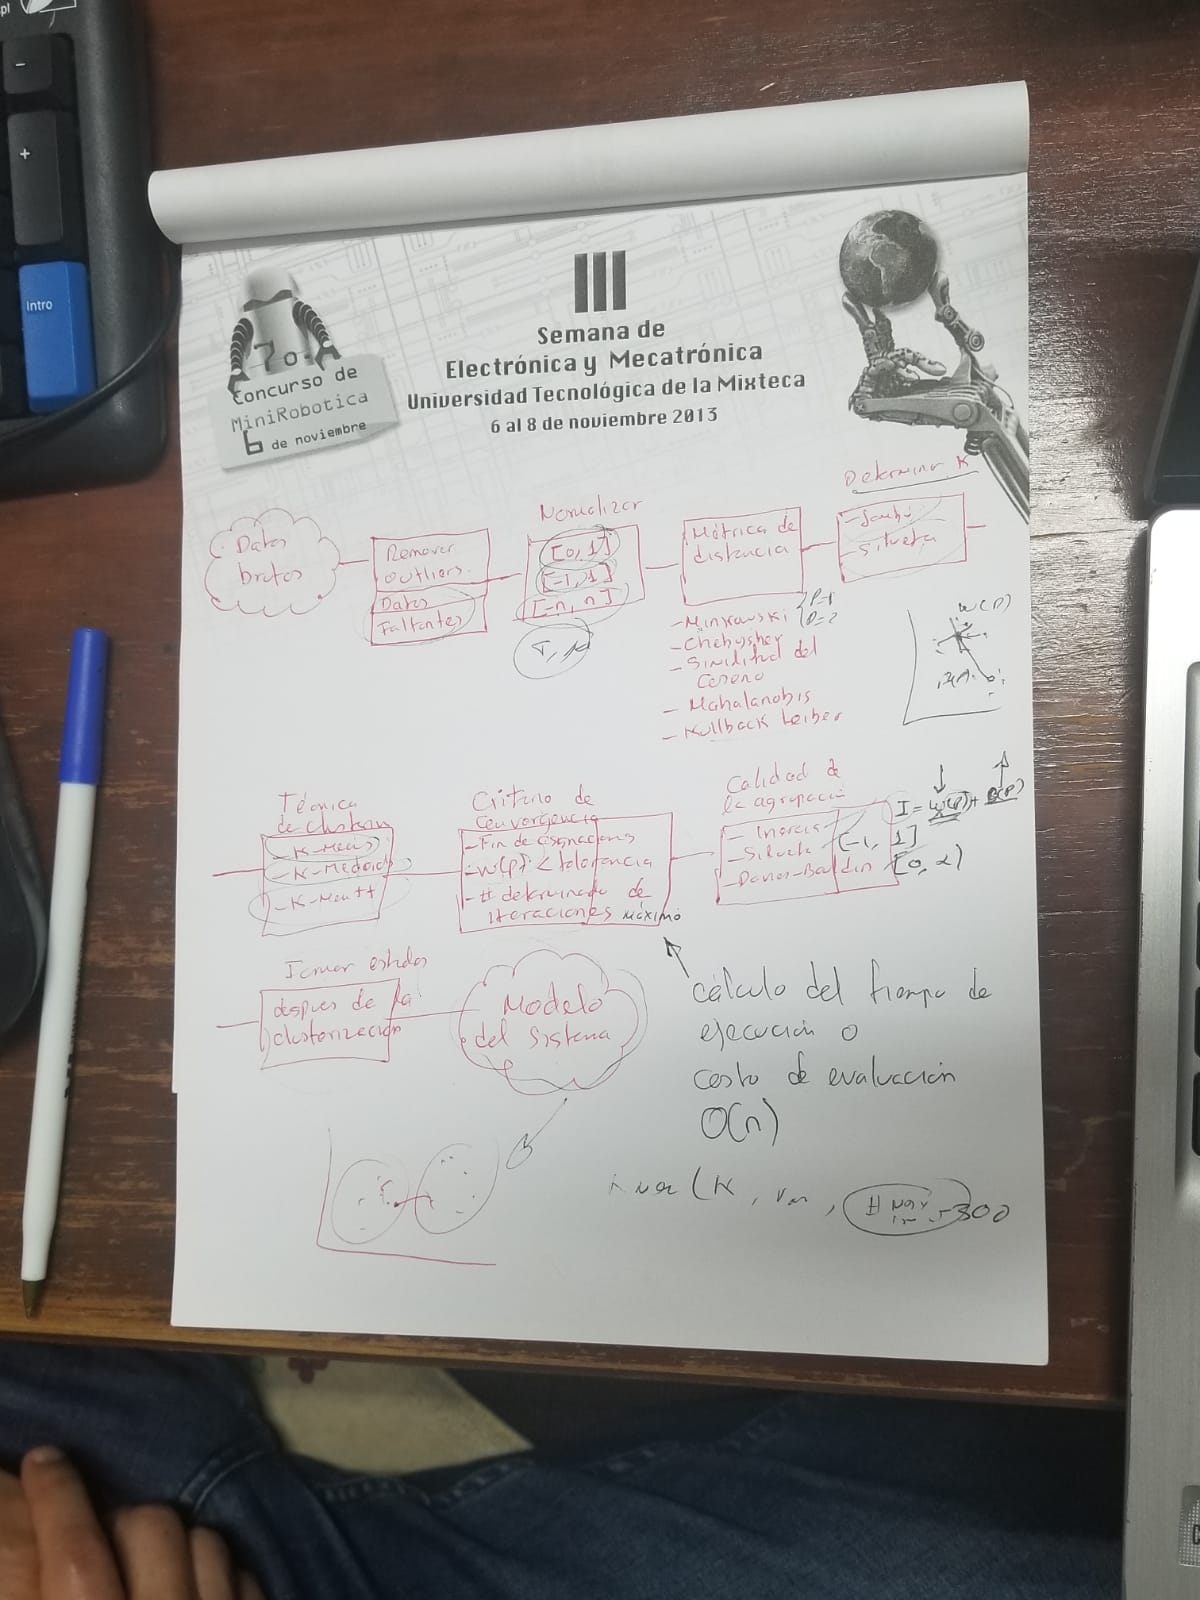 Intro
7o.
Concurso de
MiniRobotica
6 de noviembre
III
Semana de
Electrónica y Mecatrónica
Universidad Tecnológica de la Mixteca
6 al 8 de noviembre 2013
Datos
brutos
Remover
outliers.
Datos
Faltantes
Normalizar
[0, 1]
[-1, 1]
[-n, n]
Métrica de
distancia
- Minkowski { P=1
P=2
- Chebyshev
- Similitud del
Coseno
- Mahalanobis
- Kullback Leiber
Determinar K
- Silueta
W(P)
Técnica
de clustering
- K-Means
- K-Medoids
Criterio de
Convergencia
- Fin de asignaciones
- W(P) < tolerancia
- # determinado de
iteraciones máximo
Calidad de
la agrupación
- Inercia
- Silueta [-1, 1]
- Davies-Bouldin [0, ∝)
I = W(P) + B(P)
después de la
clusterización
Modelo
del Sistema
cálculo del tiempo de
ejecución o
costo de evaluación
O(n)
300